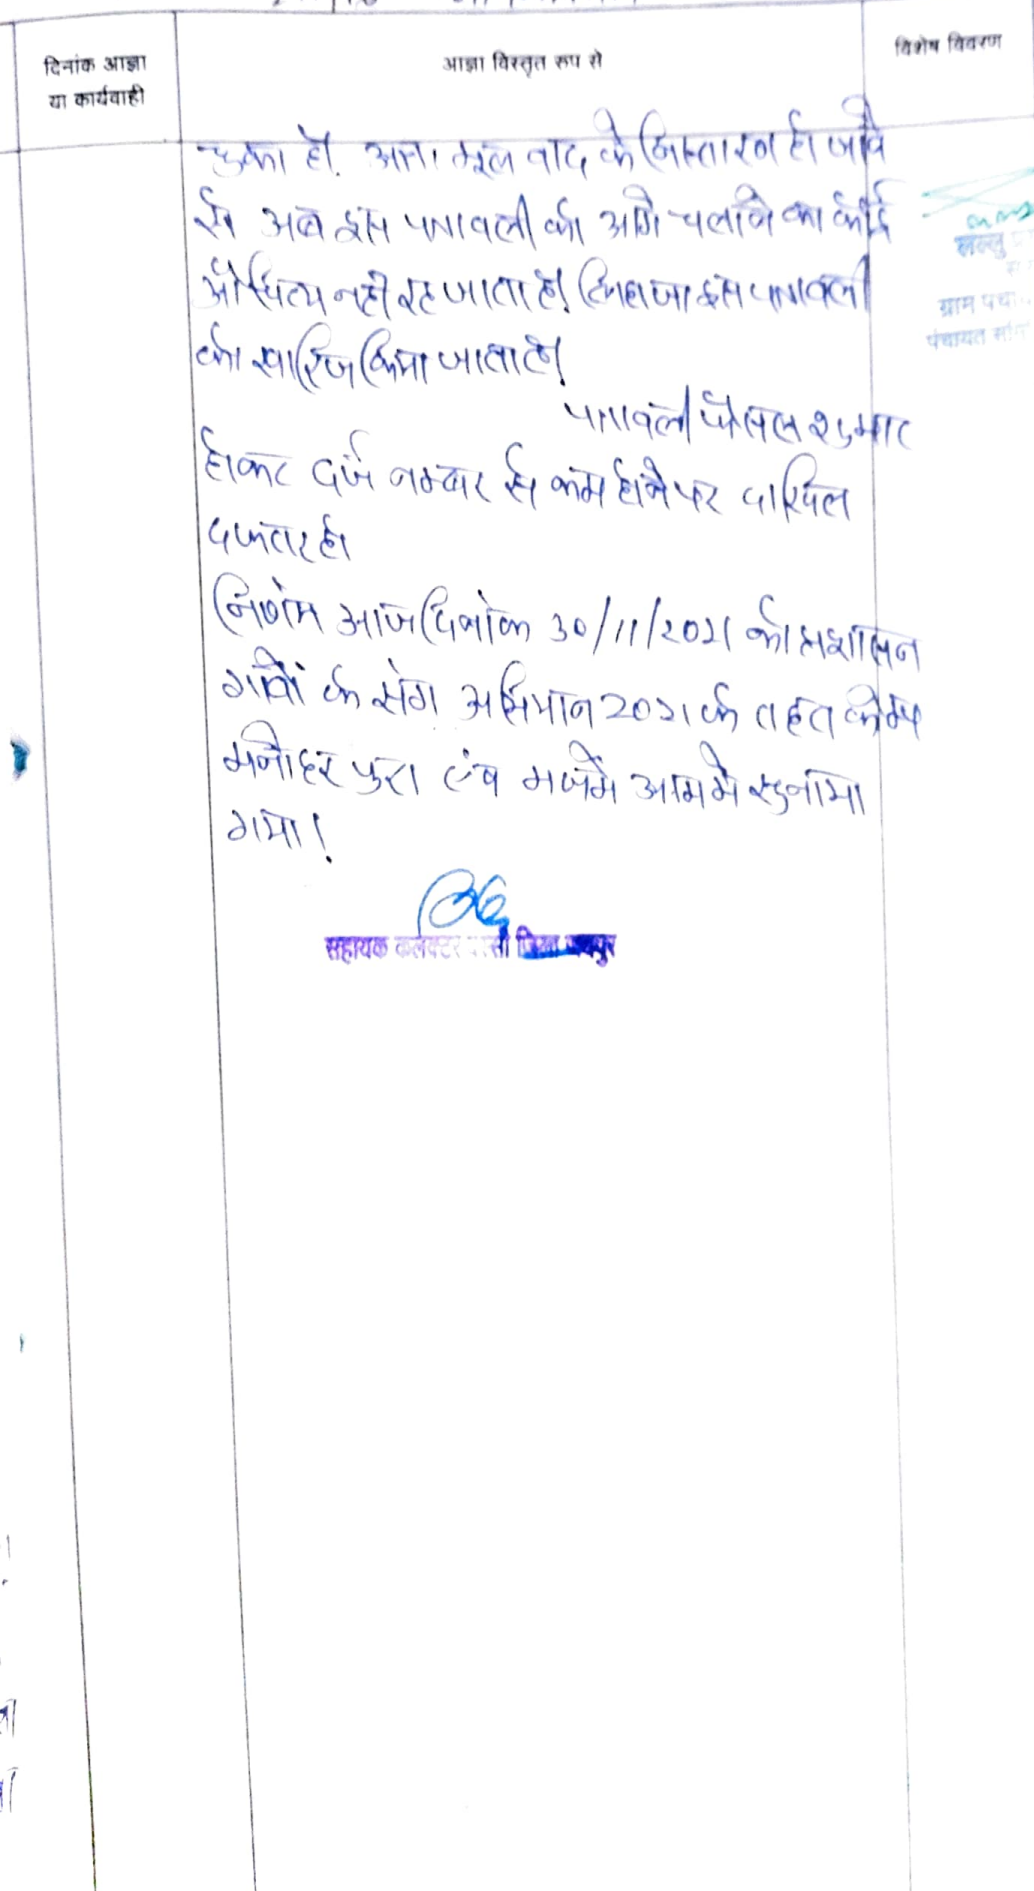 दिनांक आज्ञा
या कार्यवाही
आज्ञा विस्तृत रूप से
विशेष विवरण
चुका है. अतः मूल वाद के निस्तारण हो जाने
से अब इस पत्रावली को आगे चलाने का कोई
औचित्य नहीं रह जाता है। लिहाजा इस पत्रावली
को खारिज किया जाता है।
पत्रावली फैसल शुमार
होकर दर्ज नम्बर से कम होने पर दाखिल
दफ्तर हो
निर्णय आज दिनांक 30/11/2021 को प्रशासन
गांवों के संग अभियान 2021 के तहत कैम्प
मनोहरपुरा एंव मजमें आम में सुनाया
गया।
सहायक कलक्टर बस्सी जिला जयपुर
लल्लु
ग्राम पंचा
पंचायत